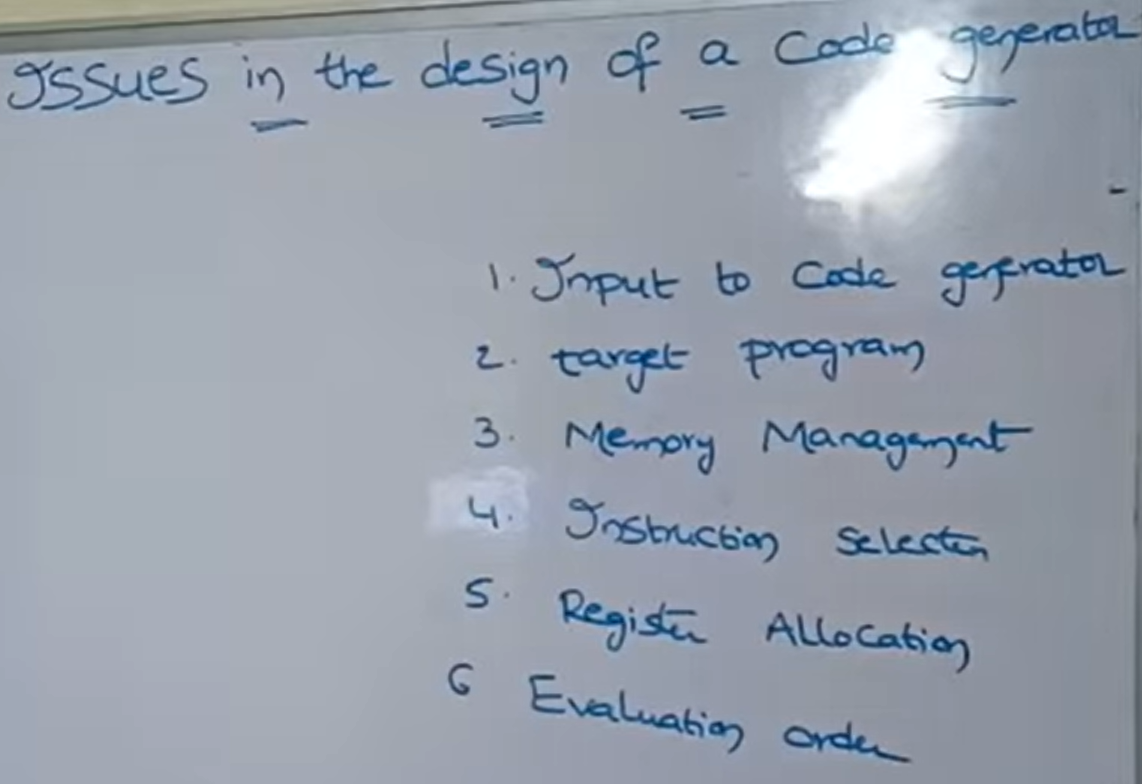 Issues in the design of a Code generator
1. Input to Code generator
2. target program
3. Memory Management
4. Instruction Selection
5. Register Allocation
6 Evaluation order